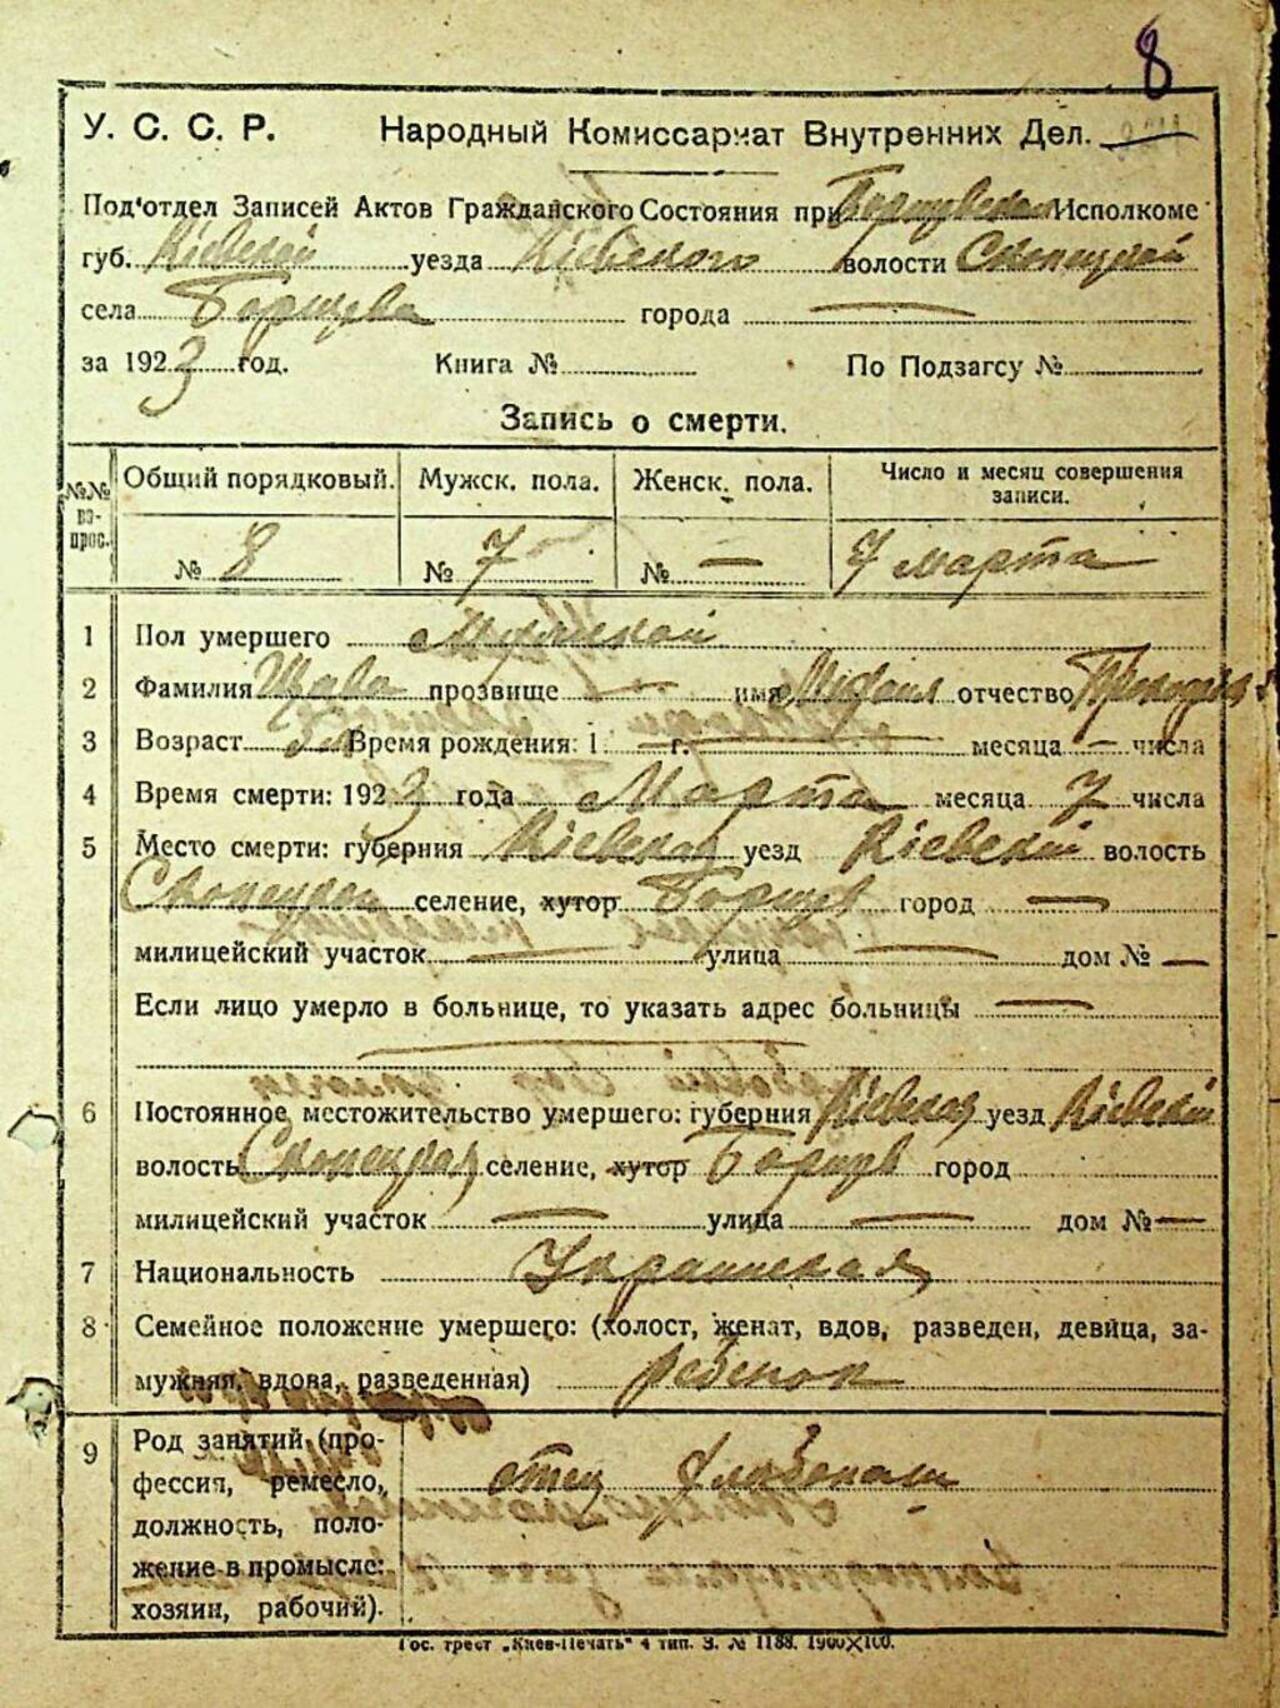 8
У. С. С. Р. Народный Комиссариат Внутренних Дел.
Под'отдел Записей Актов Гражданского Состояния при Исполкоме
губ. Кіевской уезда Кіевского волости
села Борщева города —
за 1923 год. Книга № По Подзагсу №
Запись о смерти.
№№ во-прос. Общий порядковый. Мужск. пола. Женск. пола. Число и месяц совершения записи.
№ 8 № 7 № — 7 марта
1 Пол умершего Мужской
2 Фамилия прозвище — имя отчество
3 Возраст Время рождения: 1 — г. — месяца — числа
4 Время смерти: 1923 года Марта месяца 7 числа
5 Место смерти: губерния Кіевская уезд Кіевскій волость
селение, хутор Борщев город —
милицейский участок — улица — дом № —
Если лицо умерло в больнице, то указать адрес больницы —
6 Постоянное местожительство умершего: губерния Кіевская уезд Кіевскій
волость селение, хутор Борщев город
милицейский участок — улица — дом № —
7 Национальность Украинская
8 Семейное положение умершего: (холост, женат, вдов, разведен, девица, за-
мужняя, вдова, разведенная) ребенок
9 Род занятий (про-
фессия, ремесло, отец хлебопаш
должность, поло-
жение в промысле:
хозяин, рабочий).
Гос. трест „Киев-Печать" 4 тип. З. № 1188. 1900×100.